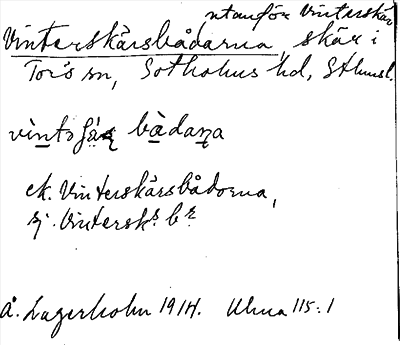 utanför Vinterskär
Vinterskärsbådarna, skär i
Torö sn, Sotholms hd, Sthmsl.
bàdaɳa
ek. Vinterskärsbådorna,
sj. Vintersk.s b.r
Å. Lagerholm 1914. Ulma 115:1